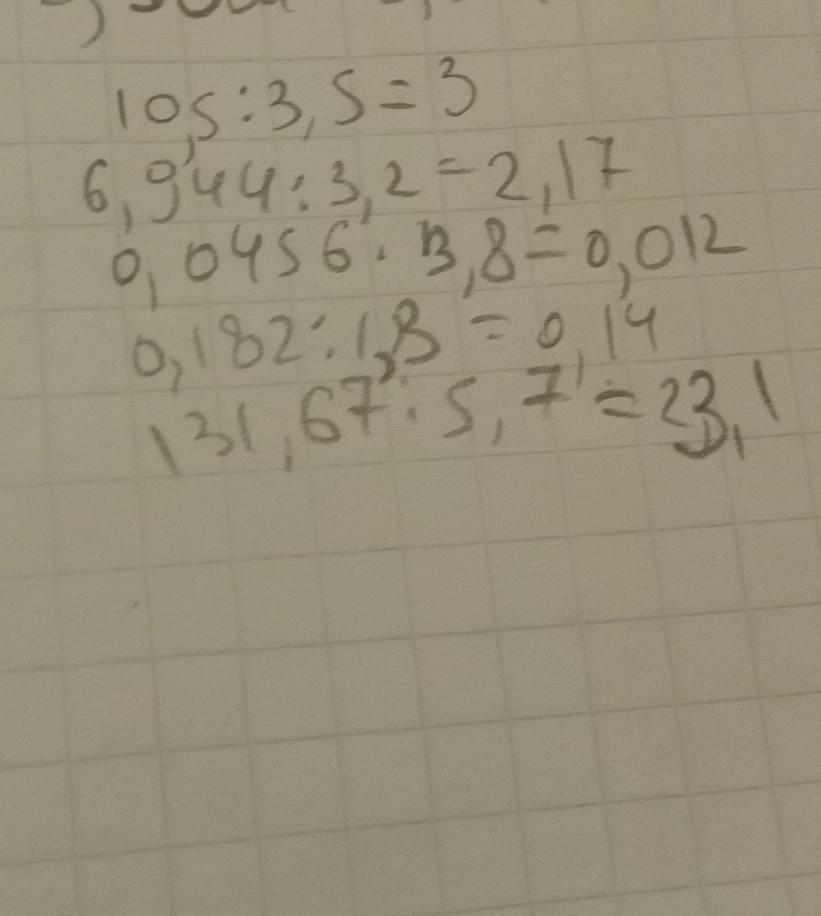 10,5:3,5=3
6,944:3,2=2,17
0,0456:3,8=0,012
0,182:1,3=0,14
131,67:5,7=23,1